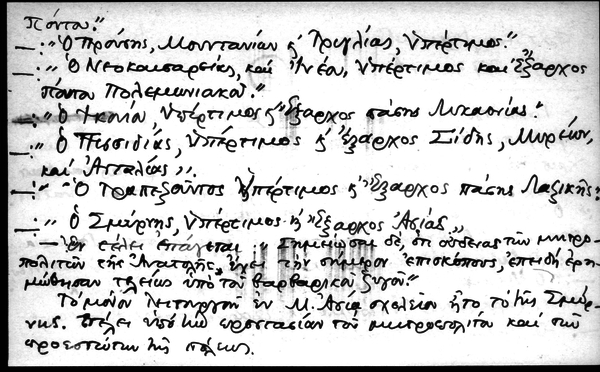 Πόντου."
—:" Ὁ Προύσης, Μουντανίων κ' Τριγλίας, Ὑπέρτιμος."
—:" Ὁ Νεοκαισαρείας, καὶ Ἰνέου, Ὑπέρτιμος καὶ Ἔξαρχος
Πόντου Πολεμωνιακοῦ."
—:" Ὁ Ἰκονίου, Ὑπέρτιμος κ' Ἔξαρχος πάσης Λυκαονίας."
—:" Ὁ Πισσιδίας, Ὑπέρτιμος κ' ἔξαρχος Σίδης, Μυρέων,
καὶ Ἀτταλίας".
—:" Ὁ Τραπεζοῦντος Ὑπέρτιμος κ' Ἔξαρχος πάσης Λαζικῆς"
—:" Ὁ Σμύρνης, Ὑπέρτιμος κ' Ἔξαρχος Ἀσίας"
— Ἐν τέλει ἐπάγεται: " Σημειῶσαι δέ, ὅτι οὐδένας τῶν μητρο-
πολιτῶν τῆς Ἀνατολῆς, ἔχει τὴν σήμερον ἐπισκόπους, ἐπειδὴ ἐρη-
μώθησαν τελείως ὑπὸ τοῦ βαρβαρικοῦ ζυγοῦ."
Τὸ μόνον λειτουργοῦν ἐν Μ. Ἀσίᾳ σχολεῖον ἦτο τὸ τῆς Σμύρ-
νης. Ἐτέλει ὑπὸ τὴν προστασίαν τοῦ μητροπολίτου καὶ τῶν
προεστώτων τῆς πόλεως.